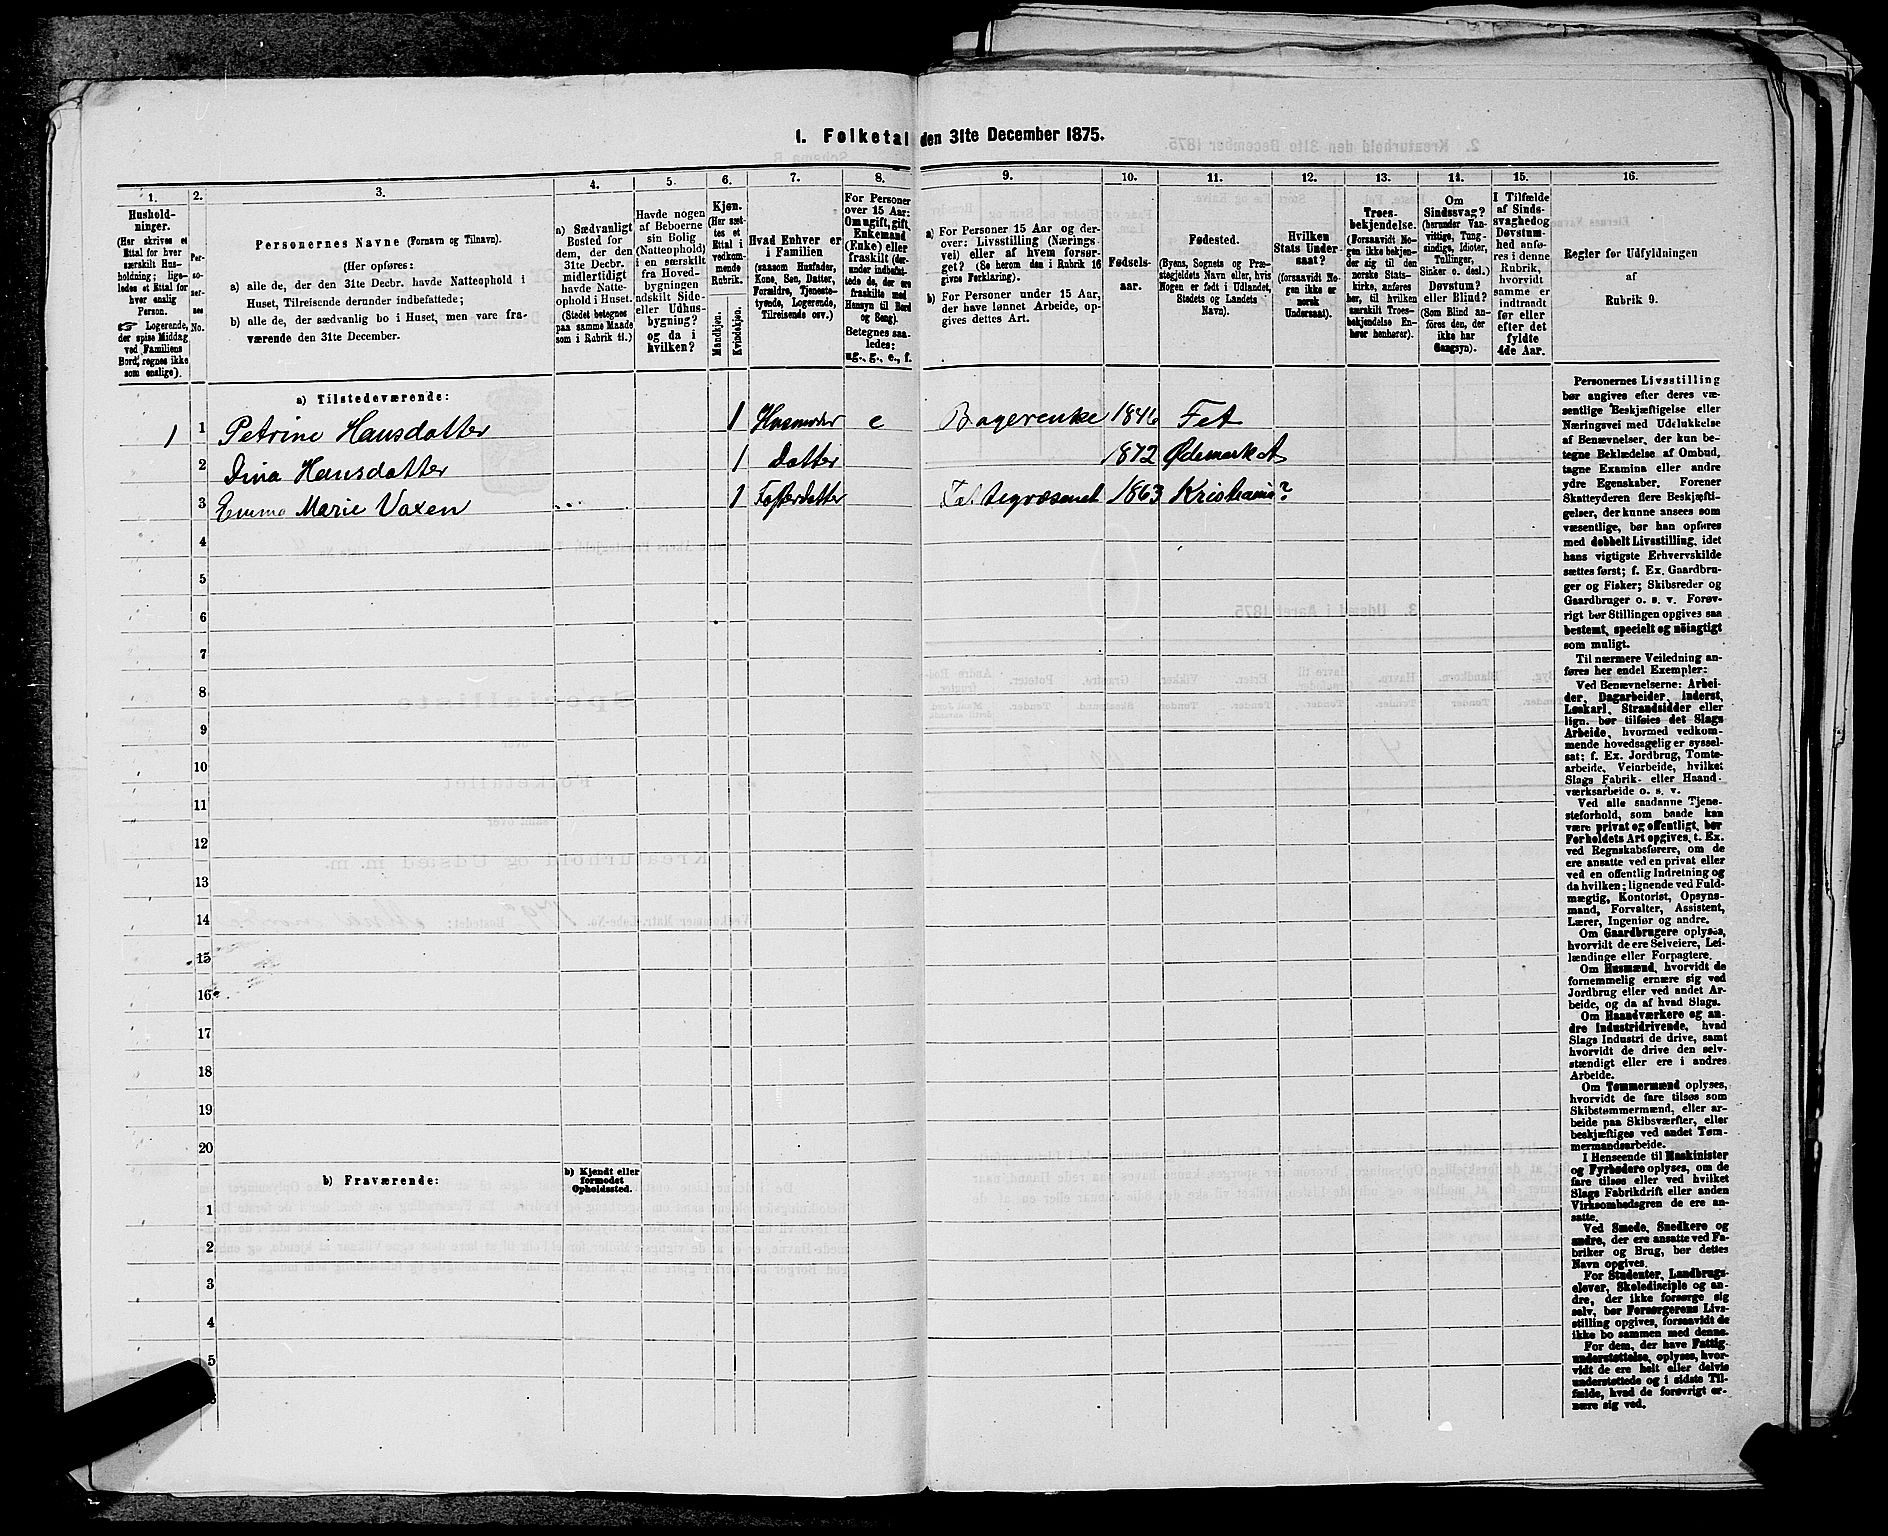 1. Folketal den 31te December 1875.
1. 2. 3. 4. 5. 6. 7. 8. 9. 10. 11. 12. 13. 14. 15. 16.
Hushold-
ninger.
(Her skrives et
Ettal for hver
særskilt Hus-
holdning; lige-
ledes et Ettal for
hver enslig
Person.
☞ Logerende,
der spise Middag
ved Familiens
Bord, regnes ikke
som enslige).
Per-
so-
ner-
nes
No.
Personernes Navne (Fornavn og Tilnavn).
(Her opføres:
a) alle de, der den 31te Decbr. havde Natteophold i
Huset, Tilreisende derunder indbefattede;
b) alle de, der sædvanlig bo i Huset, men vare fra-
værende den 31te December.
a) Sædvanligt
Bosted for
dem, der den
31te Decbr.
midlertidigt
havde Natte-
ophold i Huset.
(Stedet betegnes
paa samme Maade
som i Rubrik 11.)
Havde nogen
af Beboerne
sin Bolig
(Natteophold)
i en særskilt
fra Hoved-
bygningen
adskilt Side-
eller Udhus-
bygning?
og da i
hvilken?
Kjøn.
(Her sæt-
tes et
Ettal i
vedkom-
mende
Rubrik.
Mandkjøn.
Kvindekjøn.
Hvad Enhver er
i Familien
(saasom Husfader,
Kone, Søn, Datter,
Forældre, Tjeneste-
tyende, Logerende,
Tilreisende osv.)
For Personer
over 15 Aar:
Om ugift, gift,
Enkemand
(Enke) eller
fraskilt (der-
under indbefat-
tede de, der ere
fraskilte med
Hensyn til Bord
og Seng).
Betegnes saa-
ledes:
ug., g., e., f.
a) For Personer 15 Aar og der-
over: Livsstilling (Nærings-
vei) eller af hvem forsør-
get? (Se herom den i Rubrik 16
givne Forklaring).
b) For Personer under 15 Aar,
der have lønnet Arbeide, op-
gives dettes Art.
Fødsels-
aar.
Fødested.
(Byens, Sognets og Præ-
stegjeldets Navn eller, hvis
Nogen er født i Udlandet,
Stedets og Landets
Navn).
Hvilken
Stats Under-
saat?
(forsaavidt No-
gen ikke er
norsk
Undersaat).
Troes-
bekjendelse.
(Forsaavidt No-
gen ikke bekjen-
der sig til den
norske Stats-
kirke, anføres
her, til hvilken
særskilt Troes-
bekjendelse En-
hver henhører).
Om
Sindssvag?
(herunder Van-
vittige, Tung-
sindige, Idioter,
Tullinger,
Sinker o. desl.)
Døvstum?
eller Blind?
(Som Blind an-
føres den, der
ikke har
Gangsyn).
I Tilfælde
af Sinds-
svaghed og
Døvstum-
hed anfø-
res i denne
Rubrik,
hvorvidt
samme er
indtraadt
før eller
efter det
fyldte
4de Aar.
Regler for Udfyldningen
af
Rubrik 9.
a) Tilstedeværende:
1 1 Petrine Hansdatter 1 Husmoder e Bagerenke 1846 Fet
2 Dina Hansdatter 1 Datter 1872 Ødemarket
3 Emma Marie Vaxen 1 Fosterdatter Fattigvæsenet 1863 Kristiania?
4
5
6
7
8
9
10
11
12
13
14
15
16
17
18
19
20
b) Fraværende:
b) Kjendt eller
formodet
Opholdssted.
1
2
3
4
5
Personernes Livsstilling
bør angives efter deres væ-
sentlige Beskjæftigelse eller
Næringsvei med Udelukkelse
af Benævnelser, der kun be-
tegne Beklædelse af Ombud,
tagne Examina eller andre
ydre Egenskaber. Forener
Skatteyderen flere Beskjæfti-
gelser, der kunne ansees som
væsentlige, bør han opføres
med dobbelt Livsstilling, idet
hans vigtigste Erhvervskilde
sættes først; f. Ex. Gaardbru-
ger og Fisker; Skibsreder og
Gaardbruger o. s. v. Forøv-
rigt bør Stillingen opgives saa
bestemt, specielt og nöiagtigt
som muligt.
Til nærmere Veiledning an-
føres her endel Exempler:
Ved Benævnelserne: Arbei-
der, Dagarbeider, Inderst,
Løskarl, Strandsidder eller
lign. bør tilføies det Slags
Arbeide, hvormed vedkom-
mende hovedsagelig er syssel-
sat; f. Ex. Jordbrug, Tomte-
arbeide, Veiarbeide, hvilket
Slags Fabrik- eller Haand-
værksarbeide o. s. v.
Ved alle saadanne Tjene-
steforhold, som baade kan
være privat og offentligt, bør
Forholdets Art opgives, t. Ex.
ved Regnskabsførere, om de
ere ansatte ved en privat eller
ved en offentlig Indretning og
da hvilken; lignende ved Fuld-
mægtig, Kontorist, Opsyns-
mand, Forvalter, Assistent,
Lærer, Ingeniør og andre.
Om Gaardbrugere oplyses,
hvorvidt de ere Selveiere, Lei-
lændinge eller Forpagtere.
Om Husmænd, hvorvidt de
fornemmelig ernære sig ved
Jordbrug eller ved andet Ar-
beide, og da af hvad Slags.
Om Haandværkere og an-
dre Industridrivende, hvad
Slags Industri de drive, samt
hvorvidt de drive den selv-
stændigt eller ere i andres
Arbeide.
Om Tømmermænd oplyses,
hvorvidt de fare tilsøs som
Skibstømmermænd, eller ar-
beide paa Skibsværfter, eller
beskjæftiges ved andet Tøm-
mermandsarbeide.
I Henseende til Maskinister
og Fyrbødere oplyses, om de
fare tilsøs eller ved hvilket
Slags Fabrikdrift eller anden
Virksomhedsgren de ere an-
satte.
Ved Smede, Snedkere og
andre, der ere ansatte ved Fa-
briker og Brug, bør dettes
Navn opgives.
For Studenter, Landbrugs-
elever, Skoledisciple og an-
dre, der ikke forsørge sig
selv, bør Forsørgerens Livs-
stilling opgives, forsaavidt de
ikke bo sammen med denne.
For dem, der have Fattig-
understøttelse, oplyses, hvor-
vidt de ere helt eller delvis
understøttede og i sidste Til-
fælde, hvad de forøvrigt er-
nære sig ved.